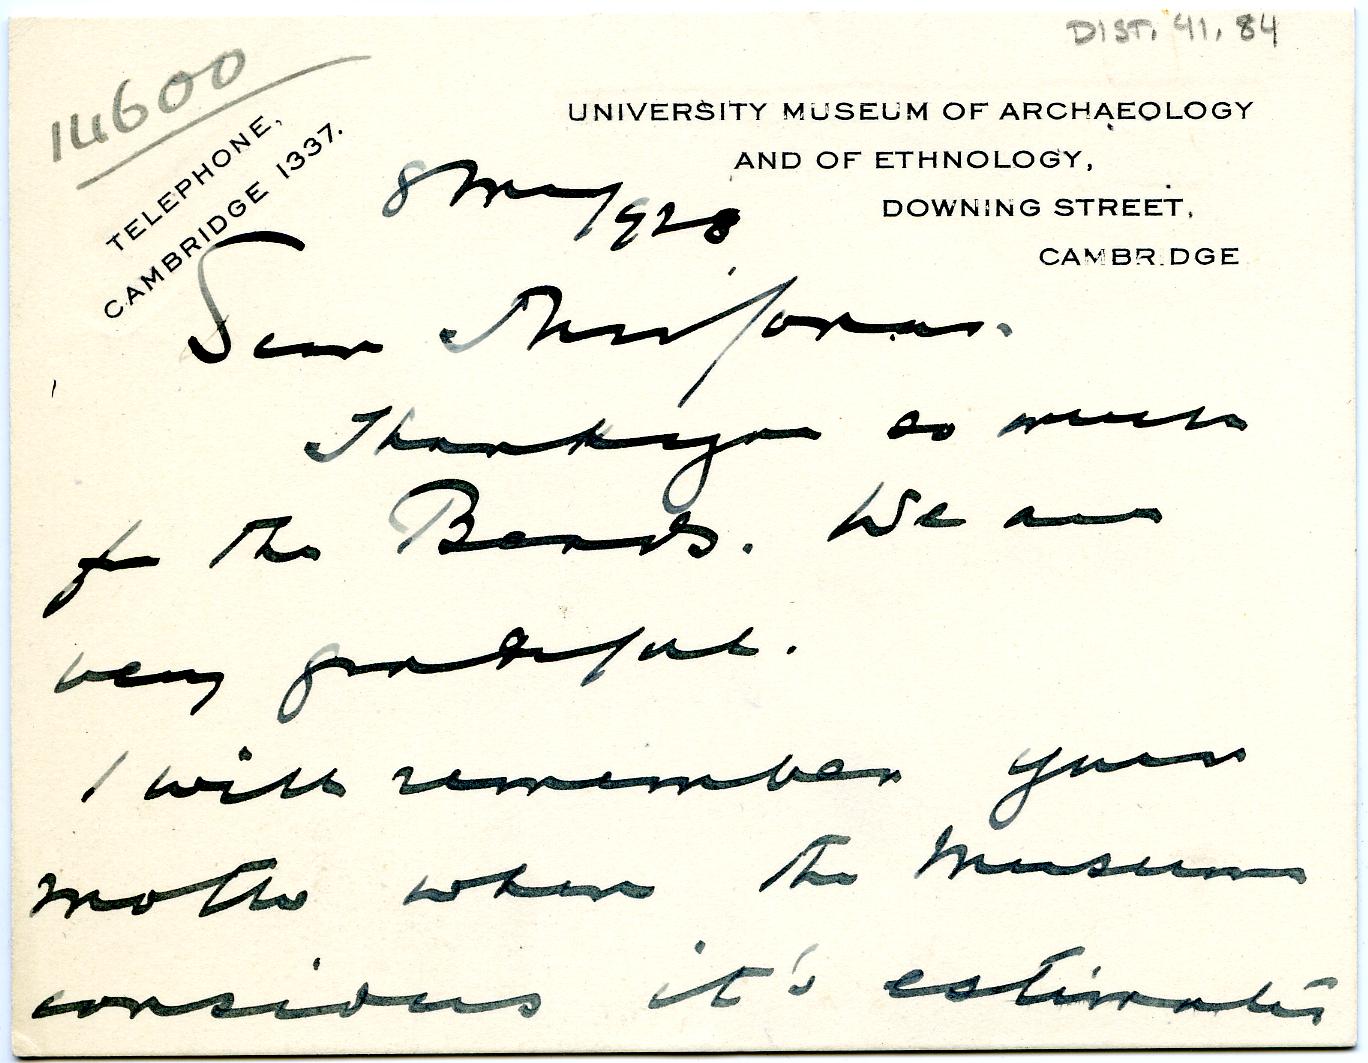 DIST. 41. 84
14600
TELEPHONE,
CAMBRIDGE 1337.
UNIVERSITY MUSEUM OF ARCHAEOLOGY
AND OF ETHNOLOGY,
DOWNING STREET,
CAMBRIDGE
8 May 1928
Dear
Thank you so much
for the Beads. We are
very grateful.
I will remember your
motto when the Museum
considers it's estimates